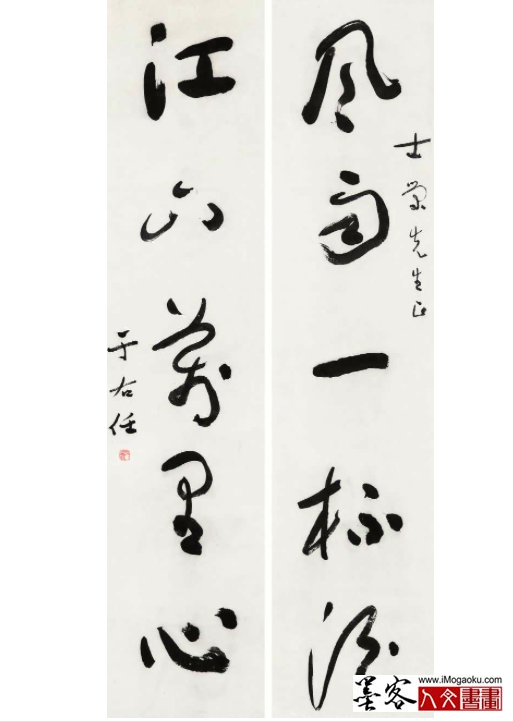 風雨一杯酒
士榮先生正
江山萬里心
于右任
墨客
www.iMogaoku.com
人文書畫